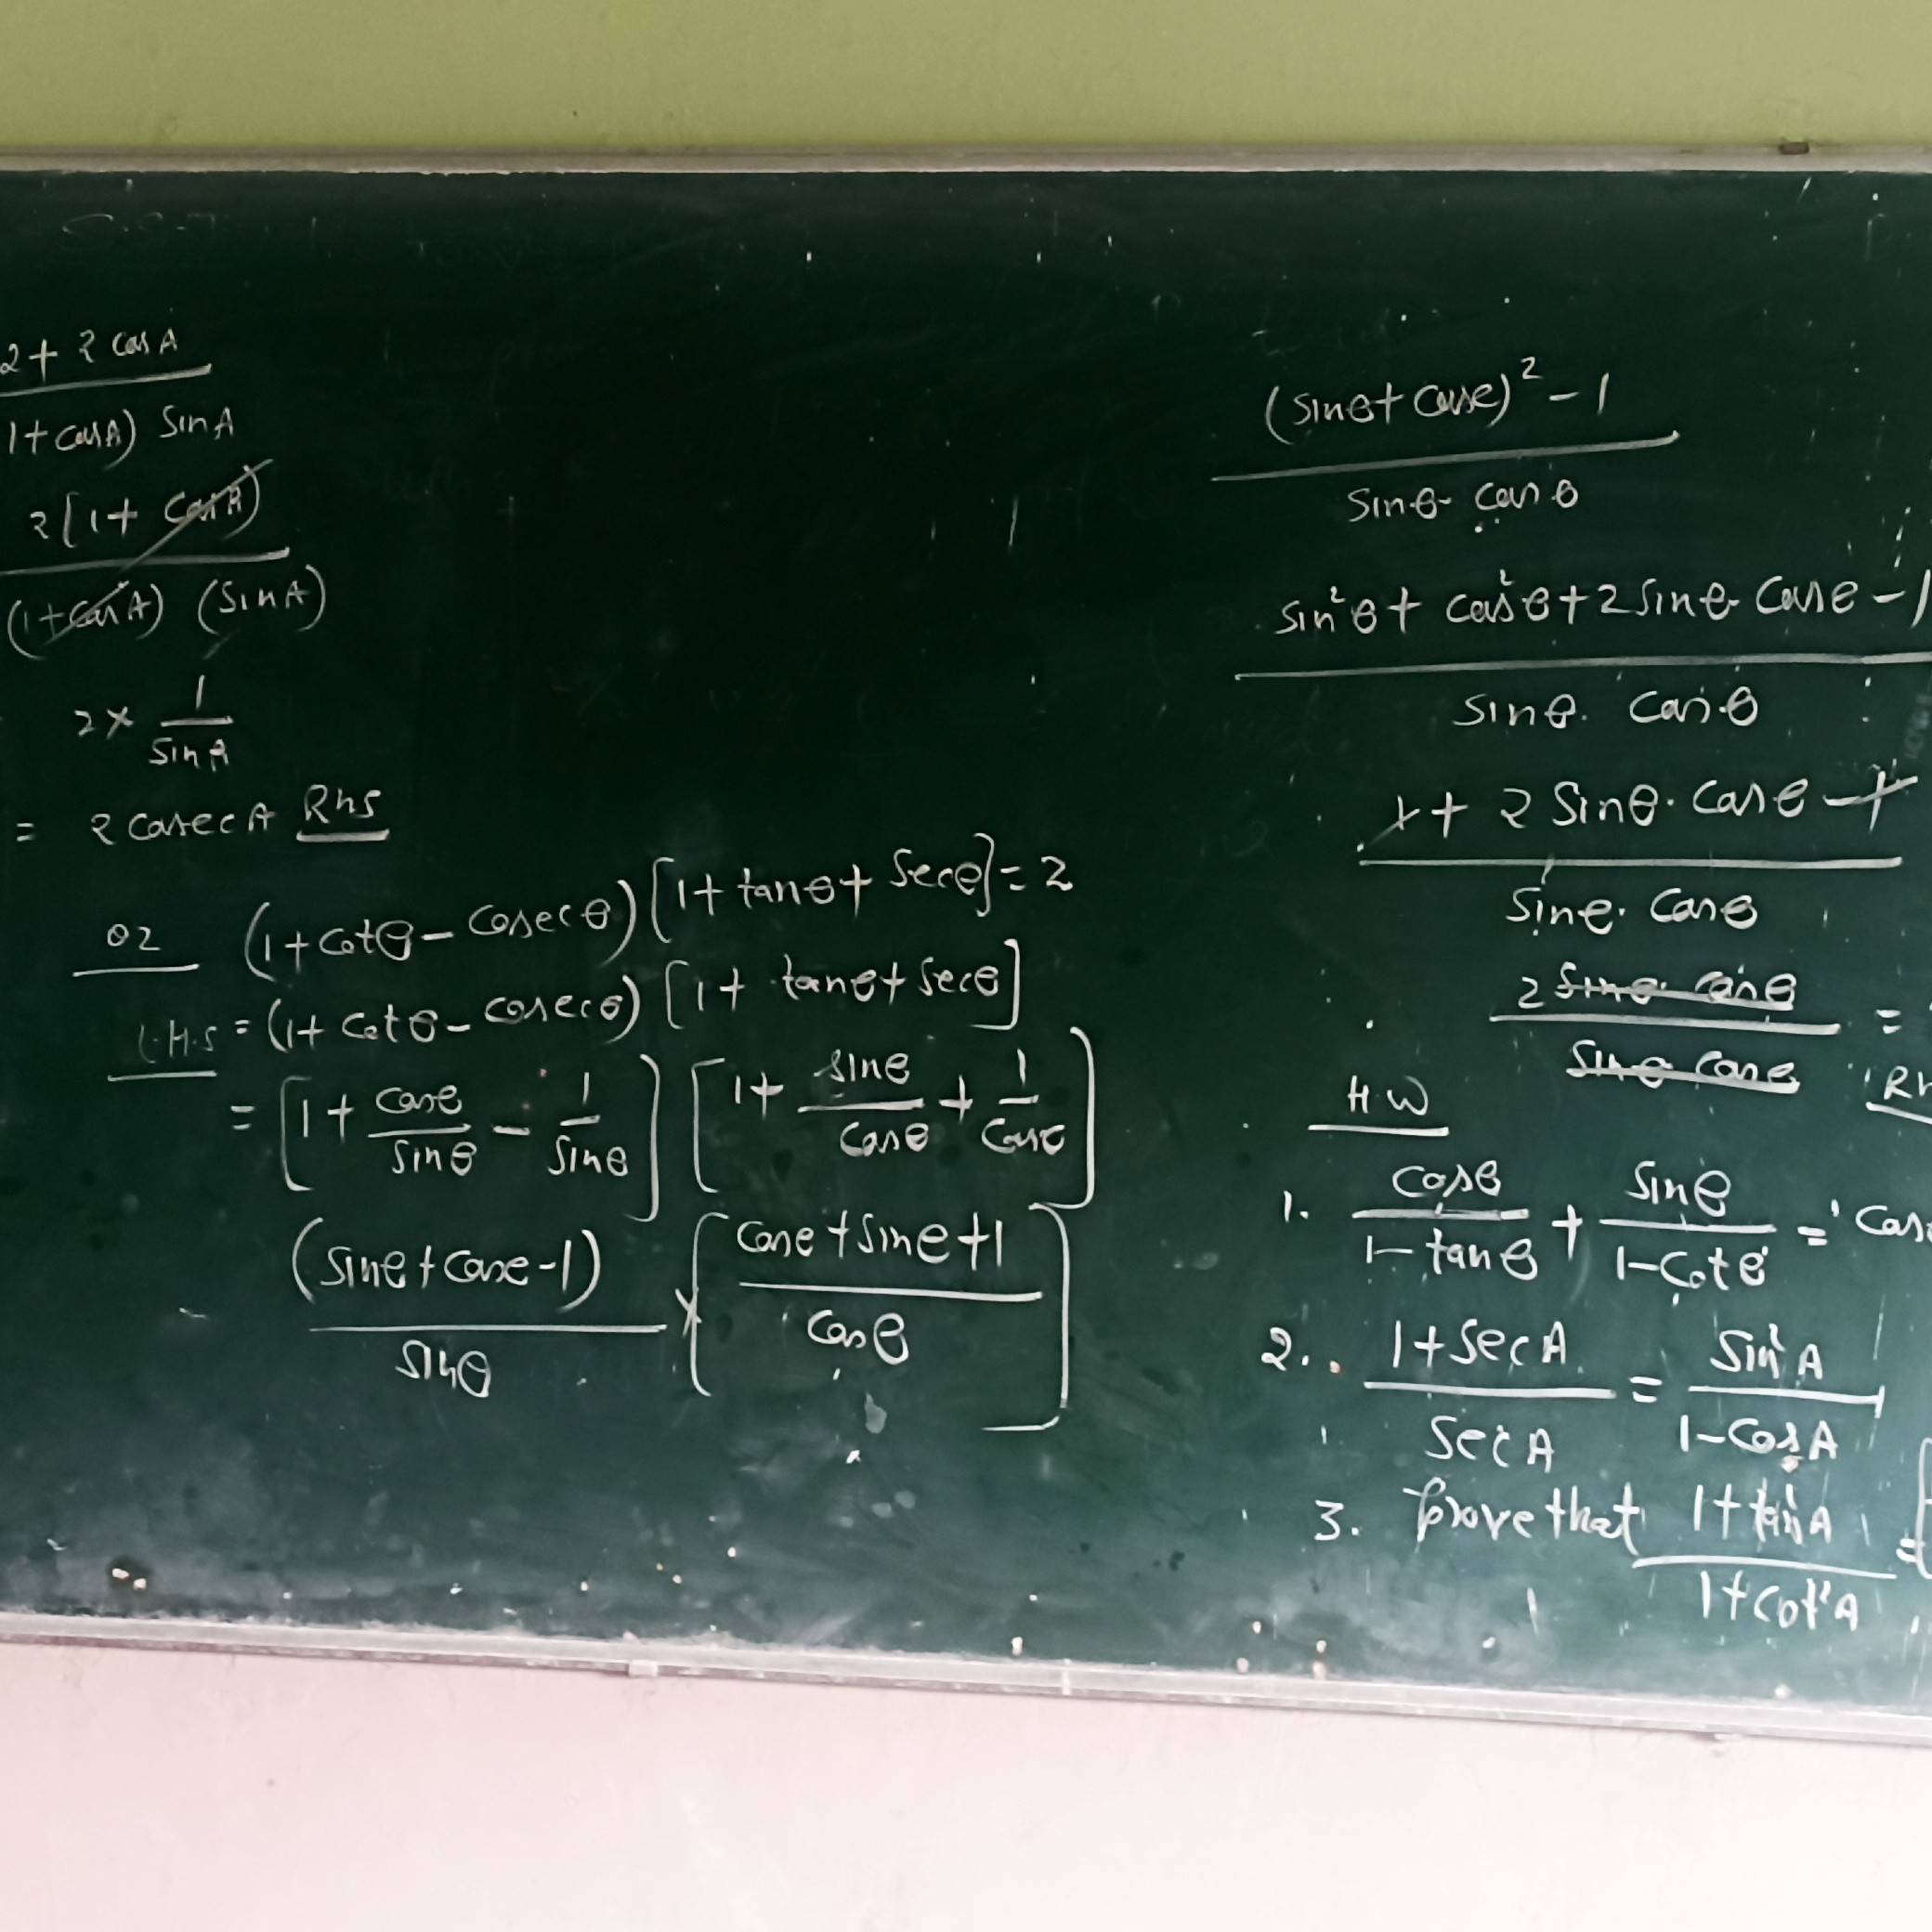 2 + 2 cosA
1+cosA) sinA
2[1+ cosA)
(1+cosA) (sinA)
2 × 1
sinA
= 2 cosecA Rhs
02 (1+cotθ - cosecθ) [1+tanθ+secθ] = 2
L.H.S = (1+cotθ - cosecθ) [1+ tanθ+secθ]
= [1+ cosθ/sinθ - 1/sinθ] [1+ sinθ/cosθ + 1/cosθ]
(sinθ+cosθ-1)/sinθ × [cosθ+sinθ+1/cosθ]
(sinθ+cosθ)² - 1
sinθ. cosθ
sin²θ + cos²θ + 2 sinθ. cosθ - 1
sinθ. cosθ
1 + 2 sinθ. cosθ - 1
sinθ. cosθ
2 sinθ. cosθ =
sinθ cosθ
H.W
1. cosθ/1-tanθ + sinθ/1-cotθ =
2. 1+secA/secA = sin²A/1-cosA
3. Prove that 1+tan²A/1+cot²A =